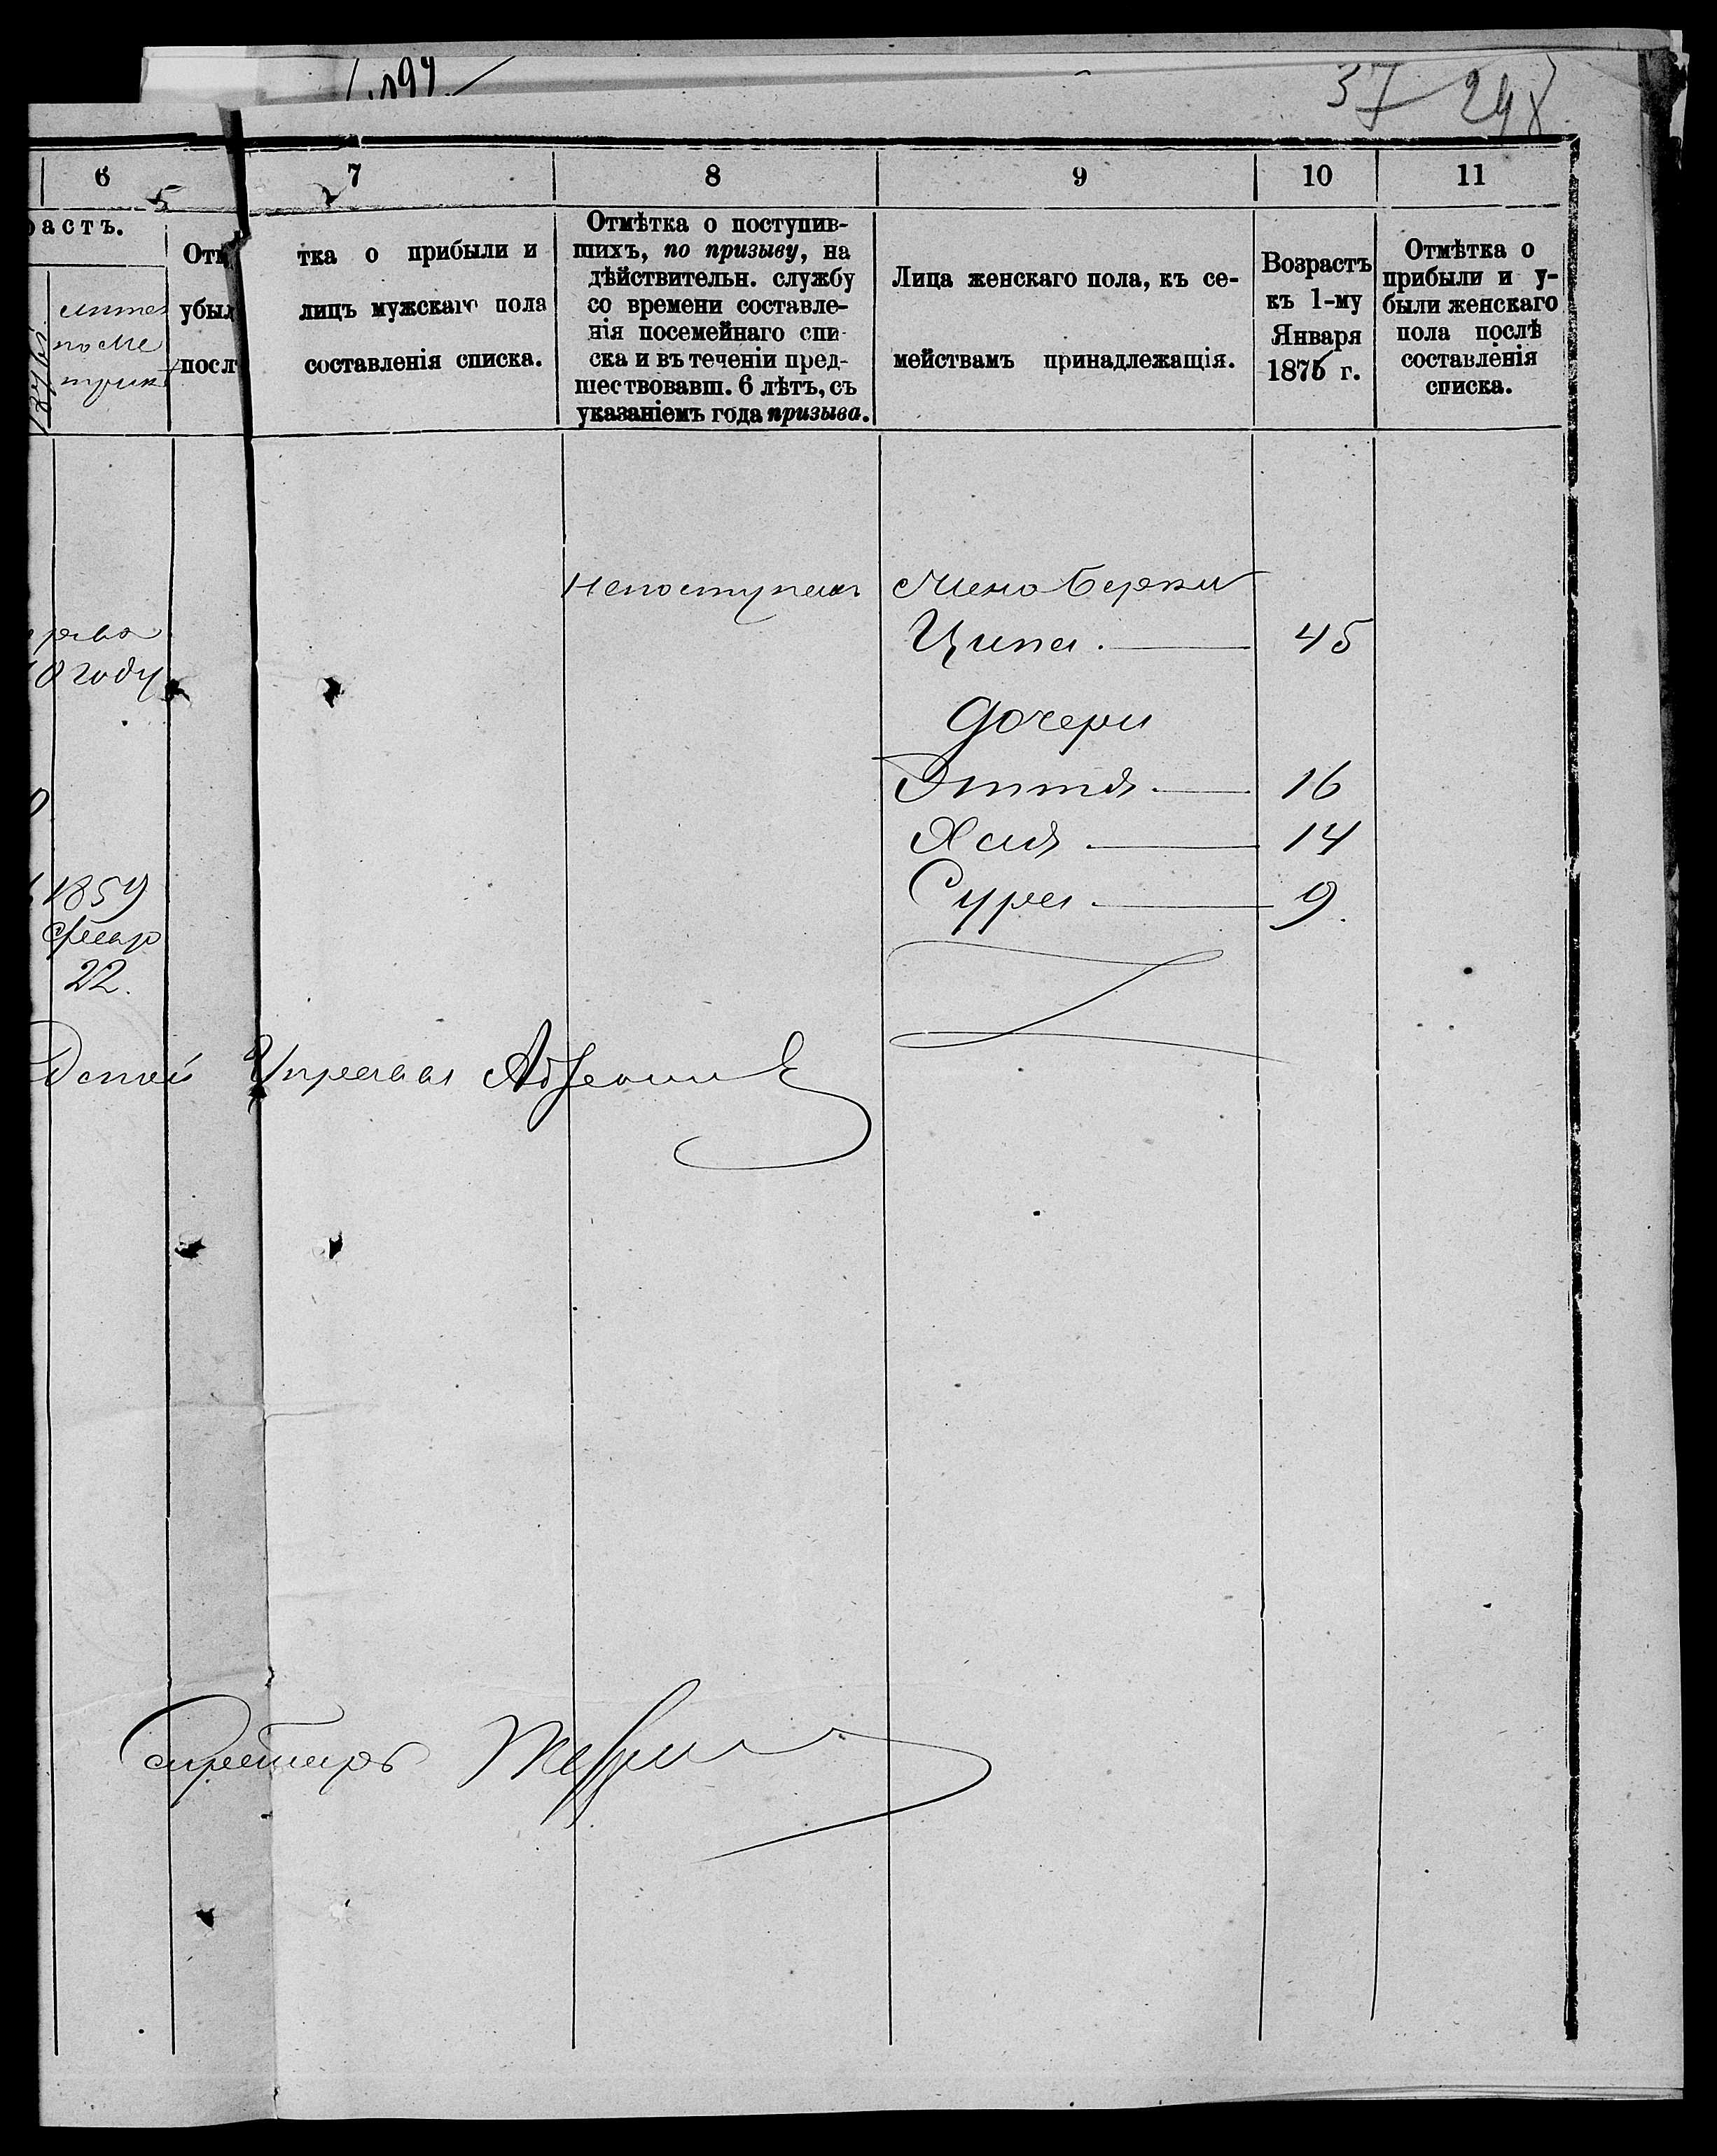 37 298
6
7
8
9
10
11
5
растъ.
1876
по ме
Отм
убыл
посл
тка о прибыли и
лицъ мужскаго пола
составленія списка.
Отмѣтка о поступив-
шихъ, по призыву, на
дѣйствительн. службу
со времени составле-
нія посемейнаго спи-
ска и въ теченіи пред-
шествовавш. 6 лѣтъ, съ
указаніемъ года призыва.
Лица женскаго пола, къ се-
мействамъ принадлежащія.
Возрастъ
къ 1-му
Января
1875 г.
Отмѣтка о
прибыли и у-
были женскаго
пола послѣ
составленія
списка.
Непоступалъ
жена Берки
Ципа. 45
году
дочери
Эттля 16
Хася 14
Сура 9.
1859
22.
Управы